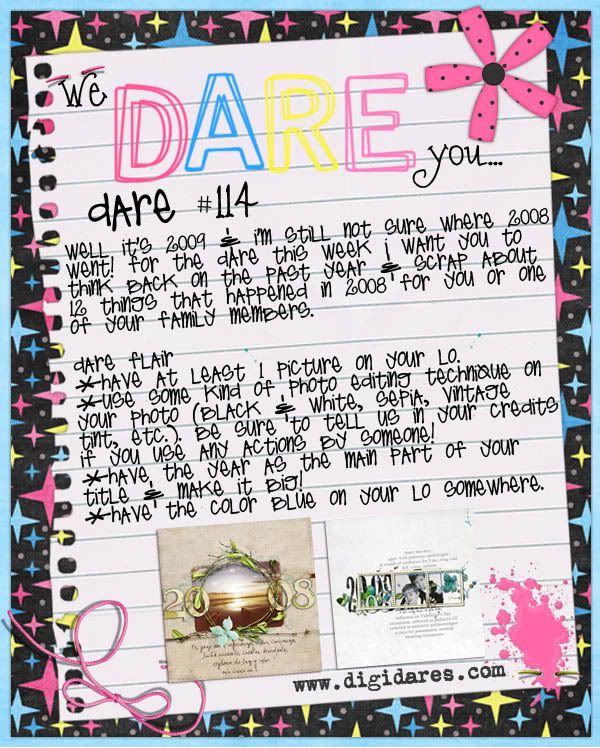 we
DARE
you...
dare #114
well it's 2009 & i'm still not sure where 2008
went! for the dare this week i want you to
think back on the past year & scrap about
12 things that happened in 2008 for you or one
of your family members.
dare flair
*have at least 1 picture on your LO.
*use some kind of photo editing technique on
your photo (black & white, sepia, vintage
tint, etc.). be sure to tell us in your credits
if you use any actions by someone!
*have the year as the main part of your
title & make it big!
*have the color blue on your LO somewhere.
2008
www.digidares.com